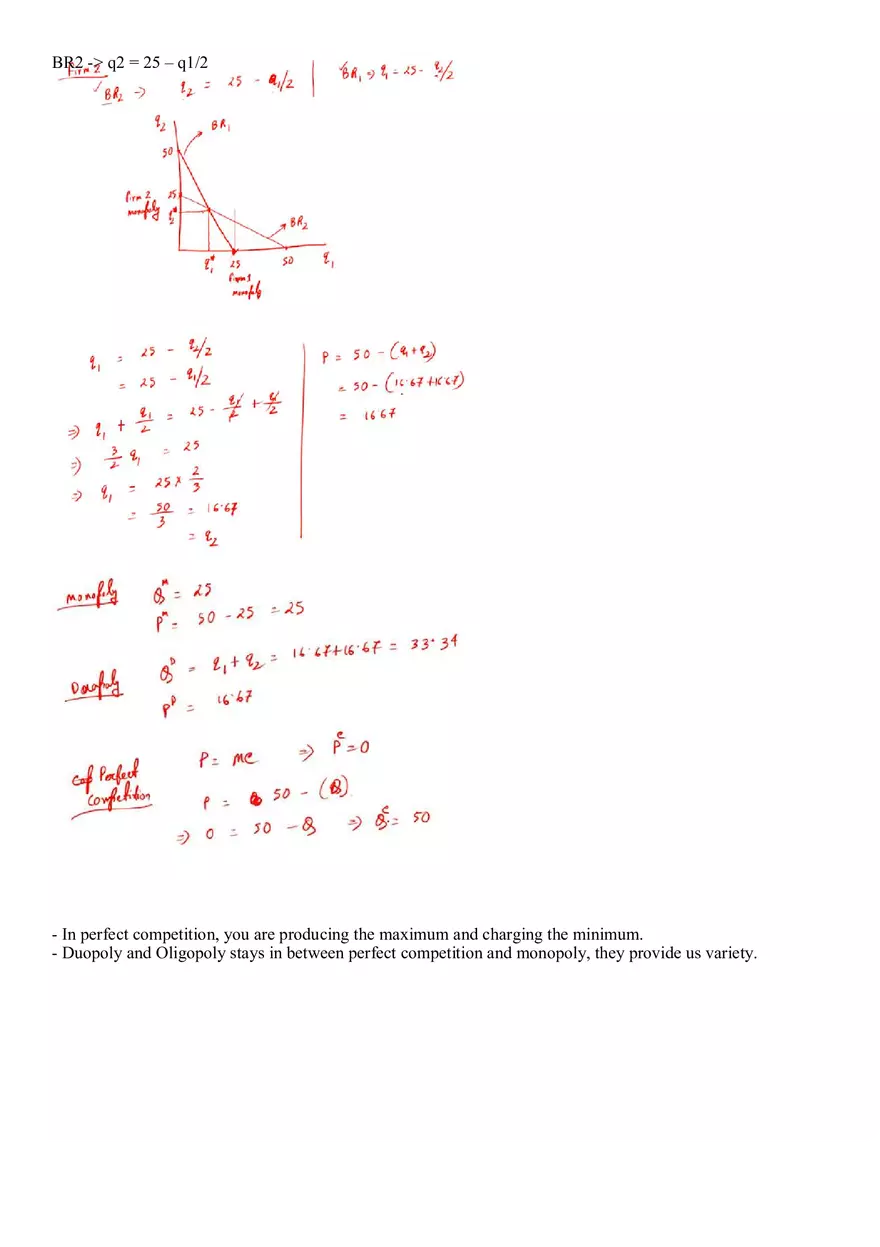 BR2 -> q2 = 25 – q1/2
Firm 2
✓BR₂ => q₂ = 25 - q₁/2 | ✓BR₁ => q₁ = 25 - q₂/2
q₂
BR₁
50
Firm 2 25
monopoly q₂*
BR₂
q₁* 25 50 q₁
Firm 1
monopoly
q₁ = 25 - q₂/2
= 25 - q₁/2
=> q₁ + q₁/2 = 25 - q₁/2 + q₁/2
=> 3/2 q₁ = 25
=> q₁ = 25 x 2/3
= 50/3 = 16.67
= q₂
P = 50 - (q₁+q₂)
= 50 - (16.67+16.67)
= 16.67
monopoly Qᴹ = 25
Pᴹ = 50 - 25 = 25
Duopoly Qᴰ = q₁ + q₂ = 16.67+16.67 = 33.34
Pᴰ = 16.67
Perfect
Competition
P = MC => Pᶜ = 0
P = 50 - (Q)
=> 0 = 50 - Q => Qᶜ = 50
- In perfect competition, you are producing the maximum and charging the minimum.
- Duopoly and Oligopoly stays in between perfect competition and monopoly, they provide us variety.